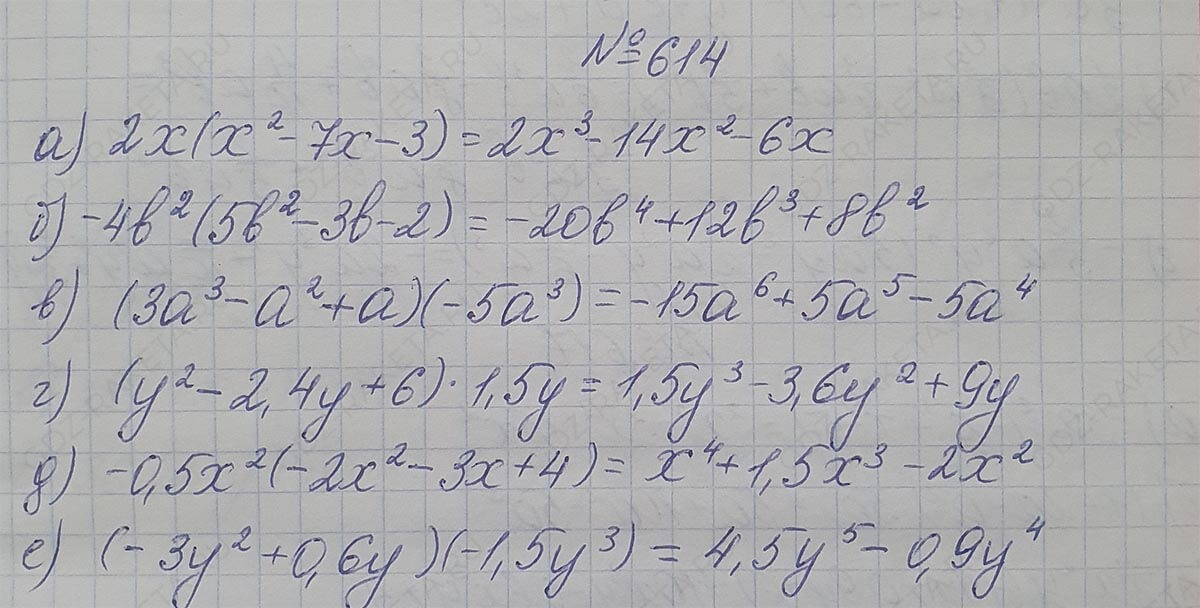 №614
а) 2x(x²-7x-3)=2x³-14x²-6x
б) -4b²(5b²-3b-2)=-20b⁴+12b³+8b²
в) (3a³-a²+a)(-5a³)=-15a⁶+5a⁵-5a⁴
г) (y²-2,4y+6)·1,5y=1,5y³-3,6y²+9y
д) -0,5x²(-2x²-3x+4)=x⁴+1,5x³-2x²
е) (-3y²+0,6y)(-1,5y³)=4,5y⁵-0,9y⁴